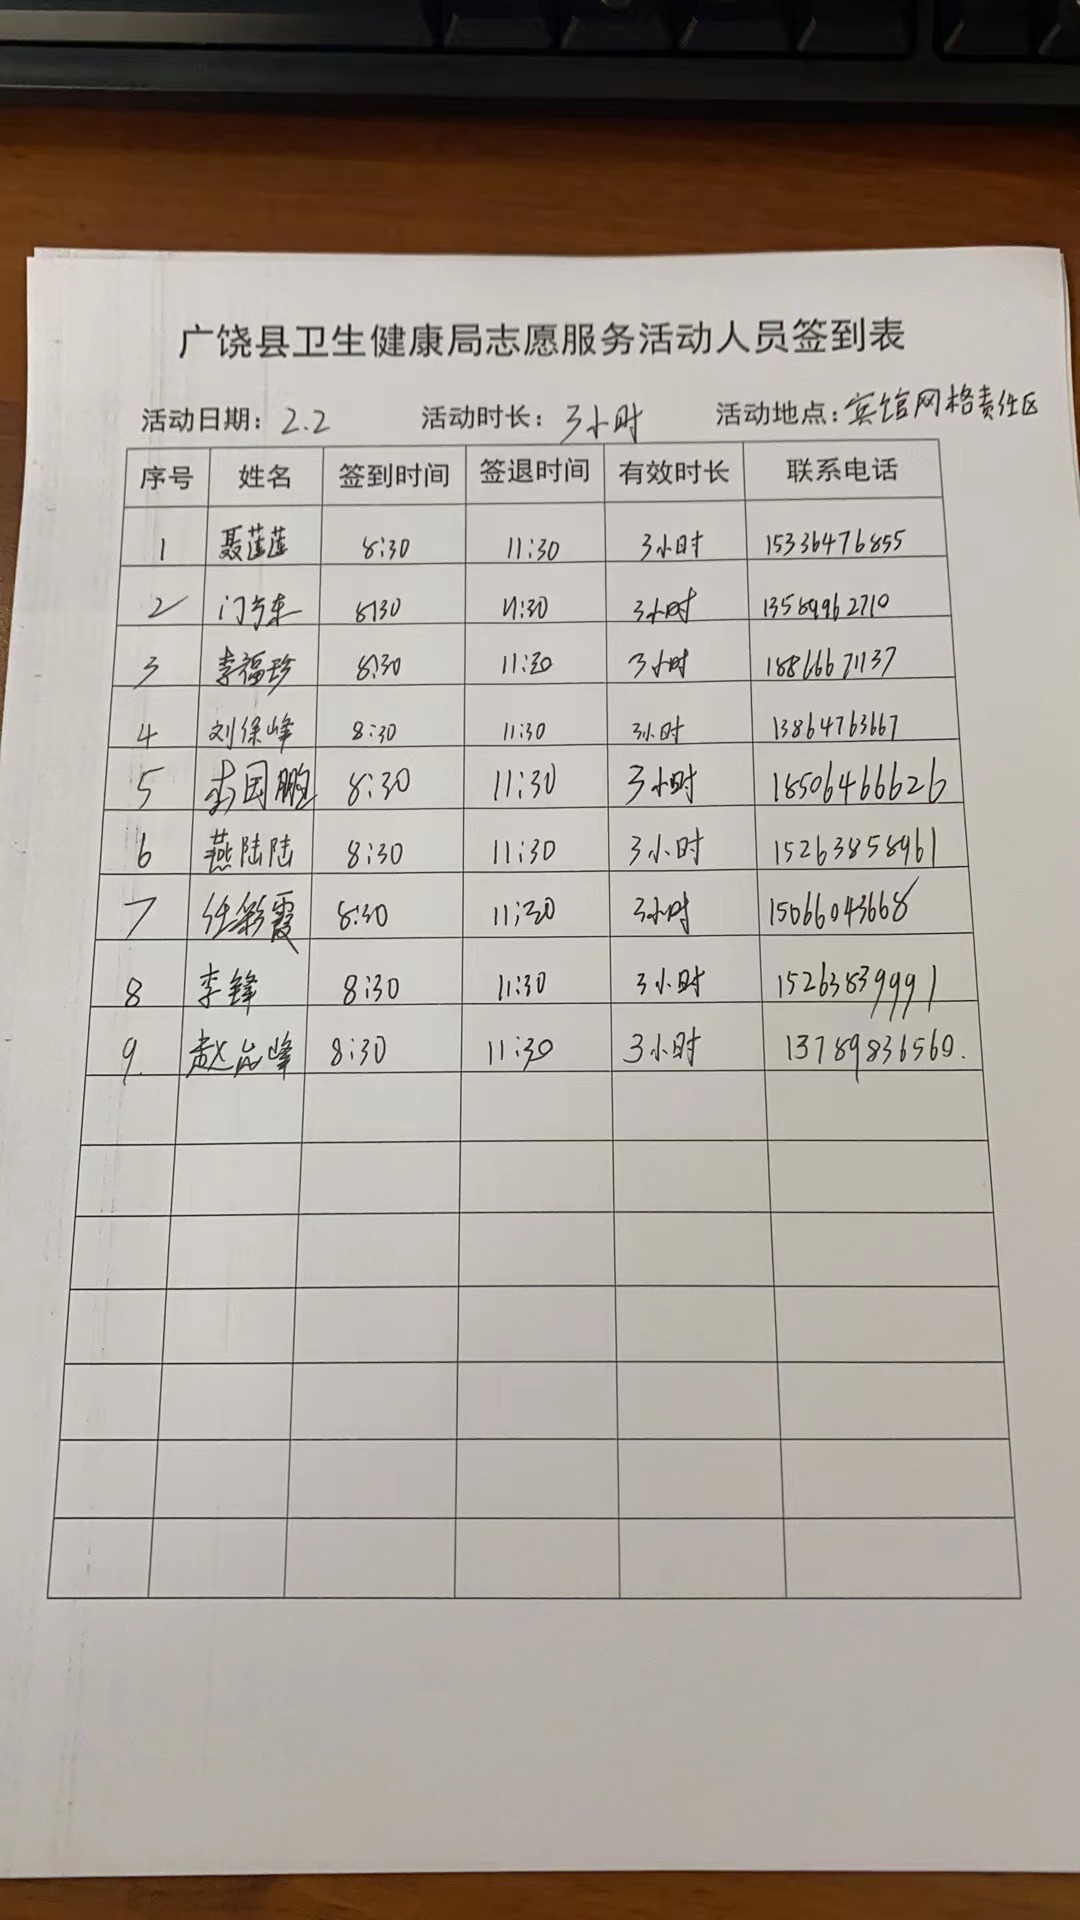 广饶县卫生健康局志愿服务活动人员签到表
活动日期：2.2 活动时长：3小时 活动地点：宾馆网格责任区
序号 姓名 签到时间 签退时间 有效时长 联系电话
1 聂莲莲 8:30 11:30 3小时 15336476855
2 8:30 11:30 3小时 13589962710
3 李福珍 8:30 11:30 3小时 18866671137
4 刘保峰 8:30 11:30 3小时 13864763667
5 李国鹏 8:30 11:30 3小时 18506466626
6 燕陆陆 8:30 11:30 3小时 15263858961
7 任彩霞 8:30 11:30 3小时 15066043668
8 李锋 8:30 11:30 3小时 15263839991
9. 赵岩峰 8:30 11:30 3小时 13789836560.